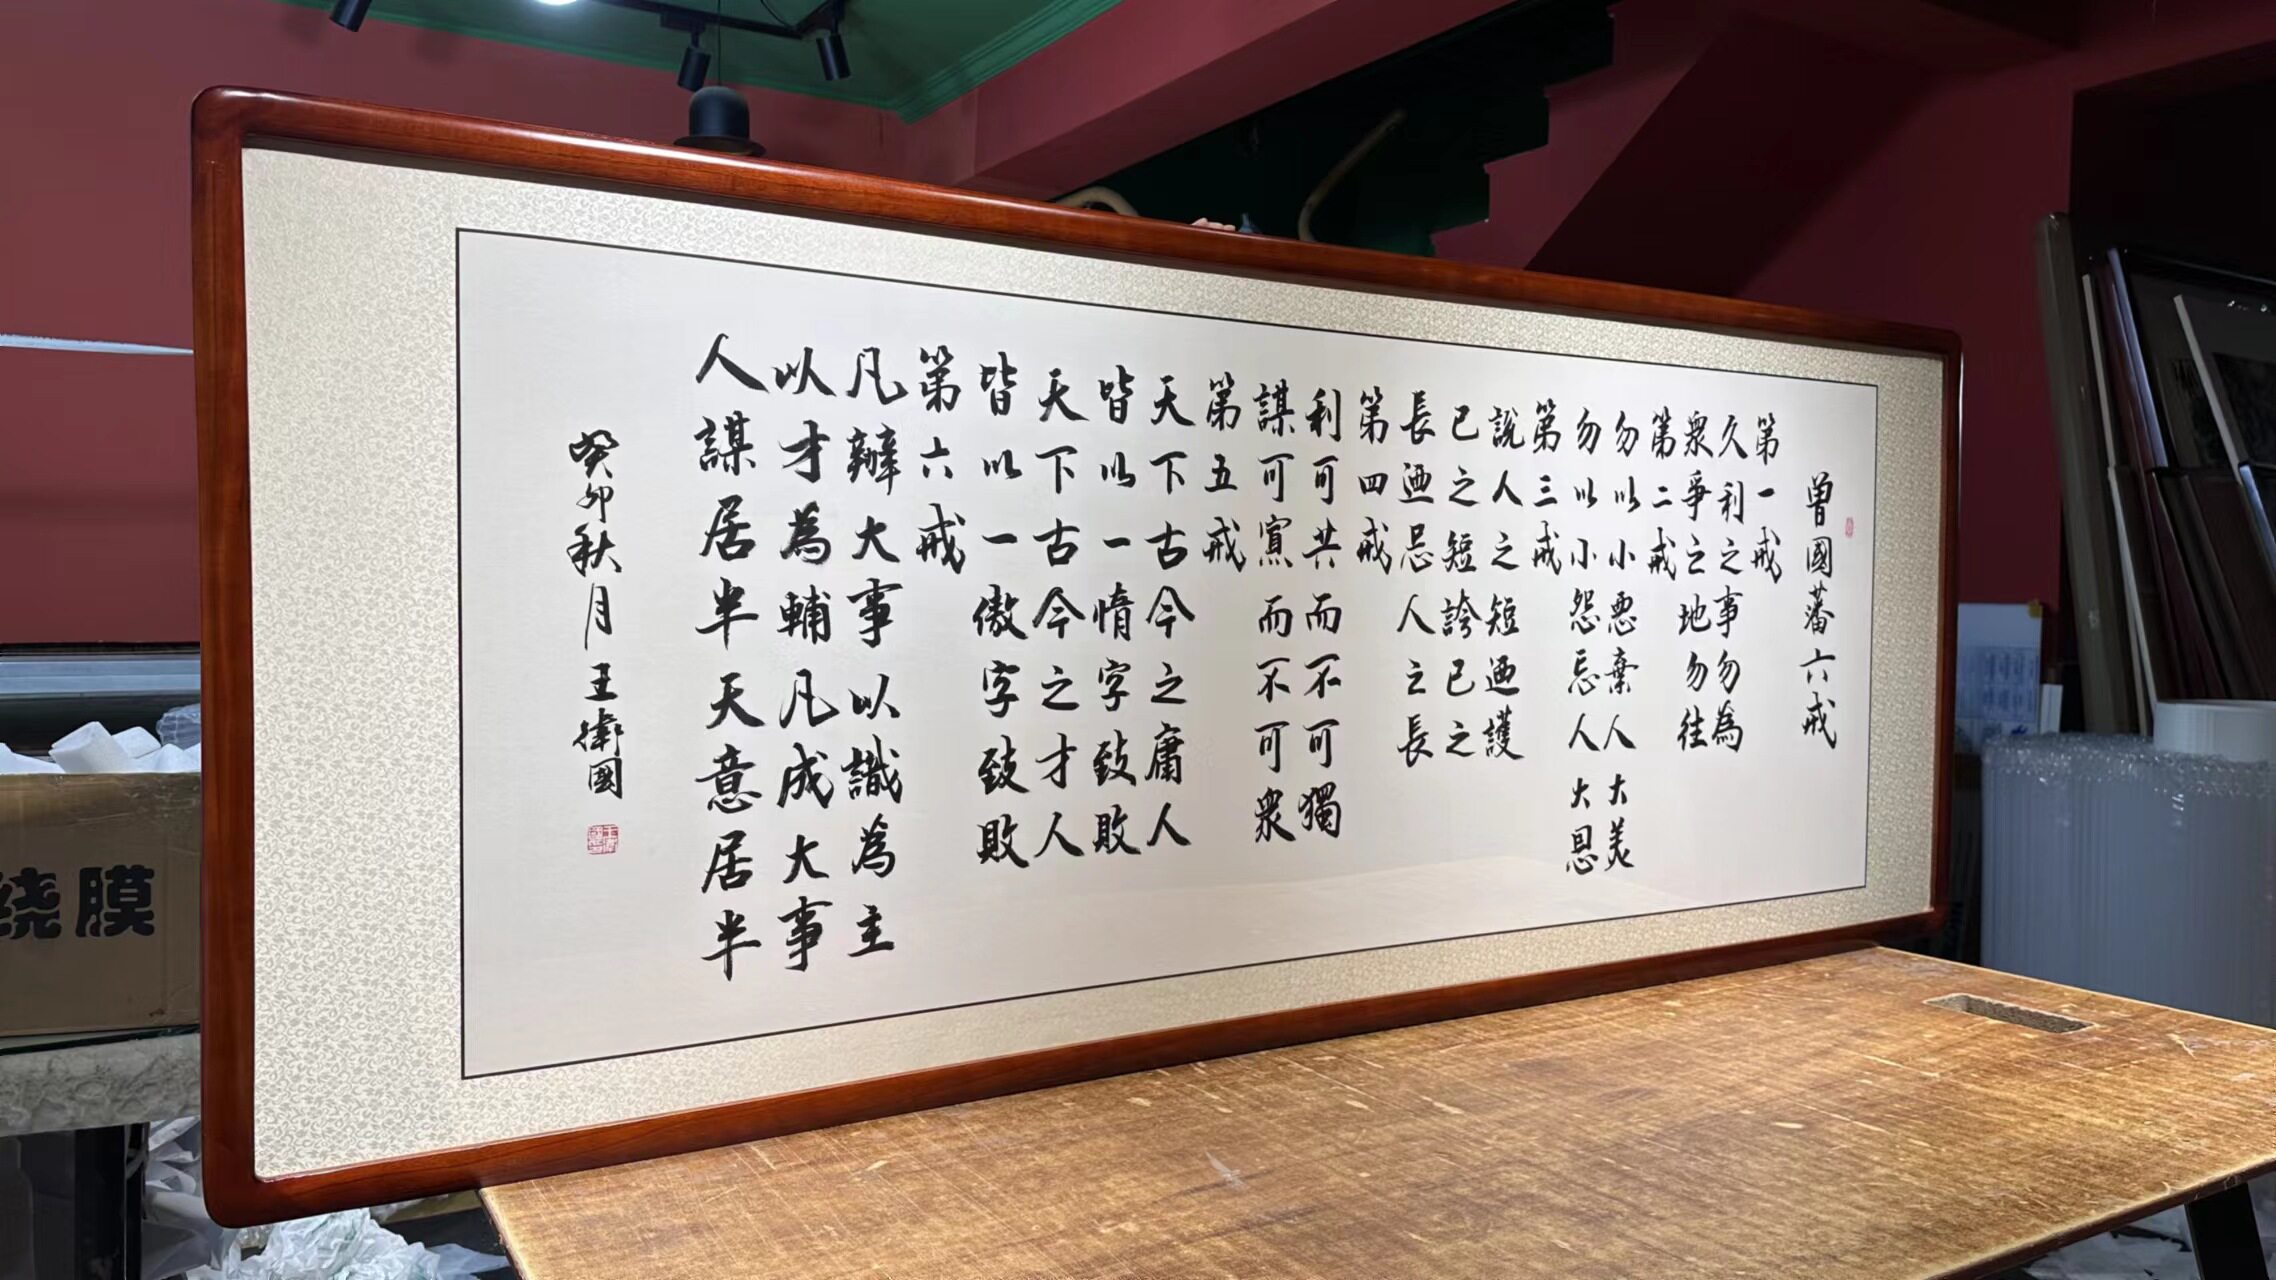 曾國藩六戒
第一戒
久利之事勿為
衆爭之地勿往
第二戒
勿以小惡棄人大美
勿以小怨忘人大恩
第三戒
說人之短迺護
已之短誇已之
長迺忌人之長
第四戒
利可共而不可獨
謀可寡而不可衆
第五戒
天下古今之庸人
皆以一惰字致敗
天下古今之才人
皆以一傲字致敗
第六戒
凡辦大事以識為主
以才為輔凡成大事
人謀居半天意居半
癸卯秋月王衛國
绕膜